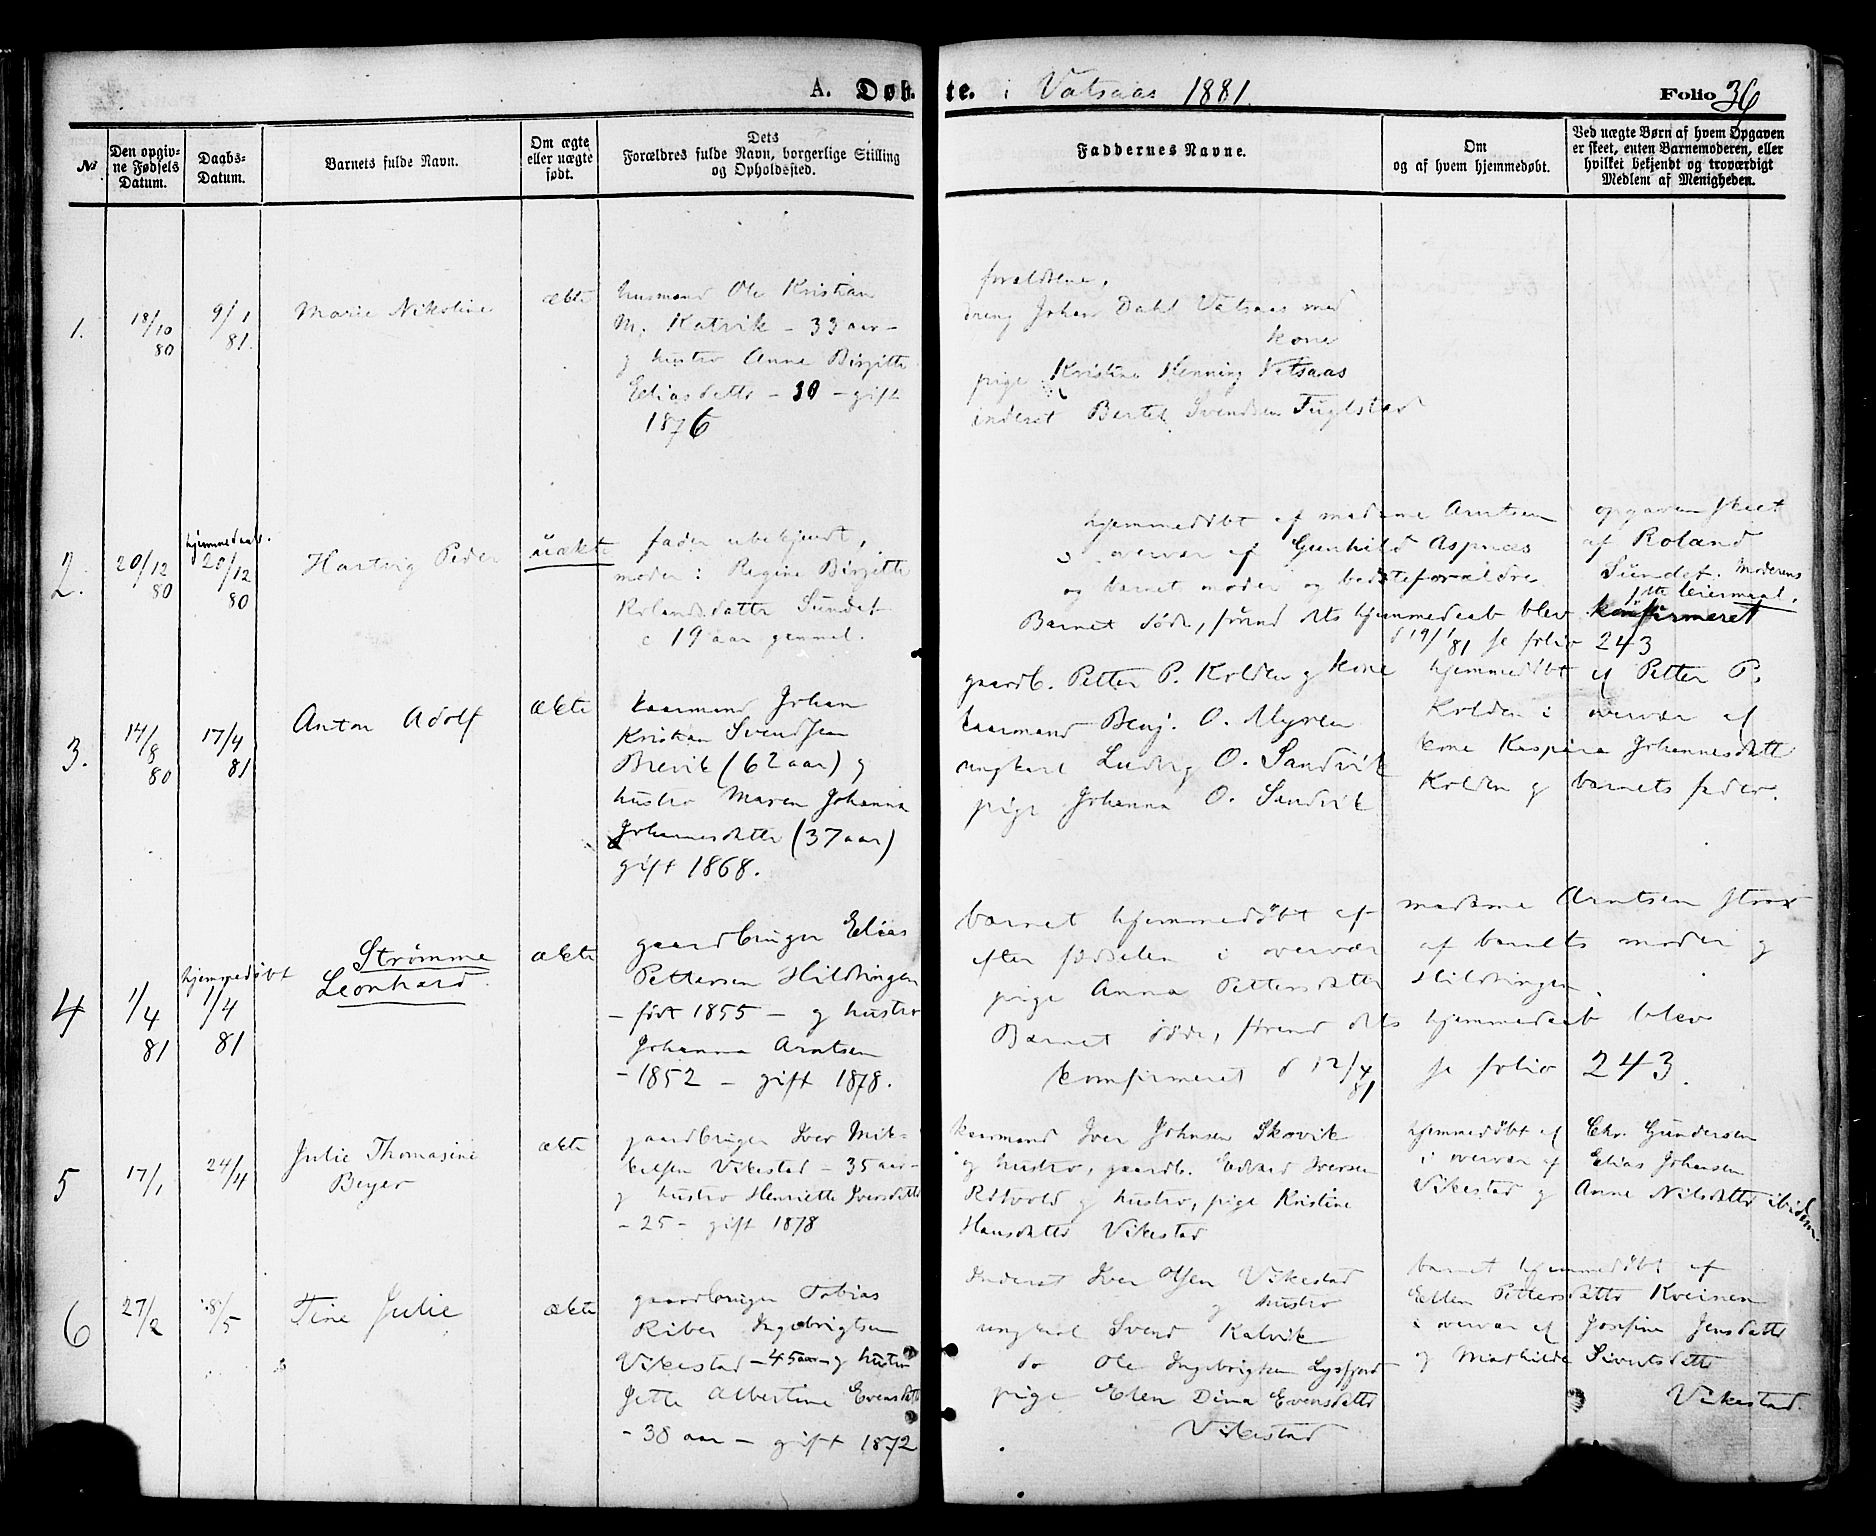 A. Døb- te. i Vatsaas 1881. Folio 36
No
Den opgiv-
ne Fødsels
Datum.
Daabs-
Datum.
Barnets fulde Navn.
Om ægte
eller uægte
født.
Dets
Forældres fulde Navn, borgerlige Stilling
og Opholdssted.
Faddernes Navne.
Om
og af hvem hjemmedøbt.
Ved uægte Børn af hvem Opgaven
er skeet, enten Barnemoderen, eller
hvilket bekjendt og troværdigt
Medlem af Menigheden.
1.
18/10
80
9/1
81.
Marie Nikoline
ækte
husmand Ole Kristian
M. Katvik - 33 aar -
g hustro Anne Birgitte
Eliasdatte - 30 - gift
1876
forældrene,
dreng Johan Dahl Vatsaas med
kone
pige Kristine Henning Vatsaas
inderst Bertel Svendsen Fuglstad
2.
20/12
80
hjemmedaab.
20/12
80
Hartvig Peder
uækte
fader ubekjendt,
moder: Regine Birgitte
Rolandsdatte Sundet
c 19 aar gammel.
hjemmedøbt af madame Arntsen
i overvær af Gunhild Aspnæs
og barnet moder og bedsteforældre
Barnet døde, førend dets hjemmedaab blev konfirmeret
d 19/1 81 se folio 243
opgaven skeet
af Roland
Sundet. Moderens
1ste leiermaal.
3.
14/8
80
17/4
81
Anton Adolf
ækte
kaarmand Johan
Kristian Svendsen
Brevik (62 aar) g
hustro Maren Johanna
Johannesdatte (37 aar)
gift 1868.
gaardb. Petter P. Kolden g kone
kaarmand Benj. O. Myren
ungkarl Ludvig O. Sandvik
pige Johanna O. Sandvik
hjemmedøbt af Petter P.
Kolden i overvær af
kone Kaspara Johannesdatte
Kolden g barnets fader.
4
1/4
81
hjemmedøbt
1/4
81
Strømme
Leonhard
ækte
gaardbruger Elias
Pettersen Hildringen
- født 1855 - g hustro
Johanna Arntsen
- 1852 - gift 1878.
barnet hjemmedøbt af madame Arntsen strax
efter fødselen i overvær af barnets moder g
pige Anna Pettersdatte Hildringen.
Barnet døde, førend dets hjemmedaab blev
konfirmeret d 12/4 81 se folio 243.
5
17/1
24/4
Julie Thomasine
Beyer
ækte
gaardbruger Iver Mik-
kelsen Vikestad - 35 aar -
g hustro Henriette Iversdatte
- 25 - gift 1878
kaarmand Iver Johnsen Skovik
g hustro, gaardb. Edvard Iversen
g hustro, pige Kristine
Hansdatte Vikestad
hjemmedøbt af Chr. Gundersen
i overvær af Elias Johansen
Vikestad g Anne Nilsdatte ibidem.
6
27/2
8/5
Tine Julie
ækte
gaardbruger Tobias
Riber Ingebrigtsen
Vikestad - 45 aar - g hustro
Jette Albertine Evensdatte
- 38 aar - gift 1872
Inderst Iver Olsen Vikestad
g hustro
ungkarl Svend Kalvik
do Ole Ingebrigtsen Lysfjord
pige Elen Dina Evensdatte
Vikestad
barnet hjemmedøbt af
Ellen Pettersdatte Kveinen
i overvær af Josefine Jensdatte
og Mathilde Sivertsdatte
Vikestad.